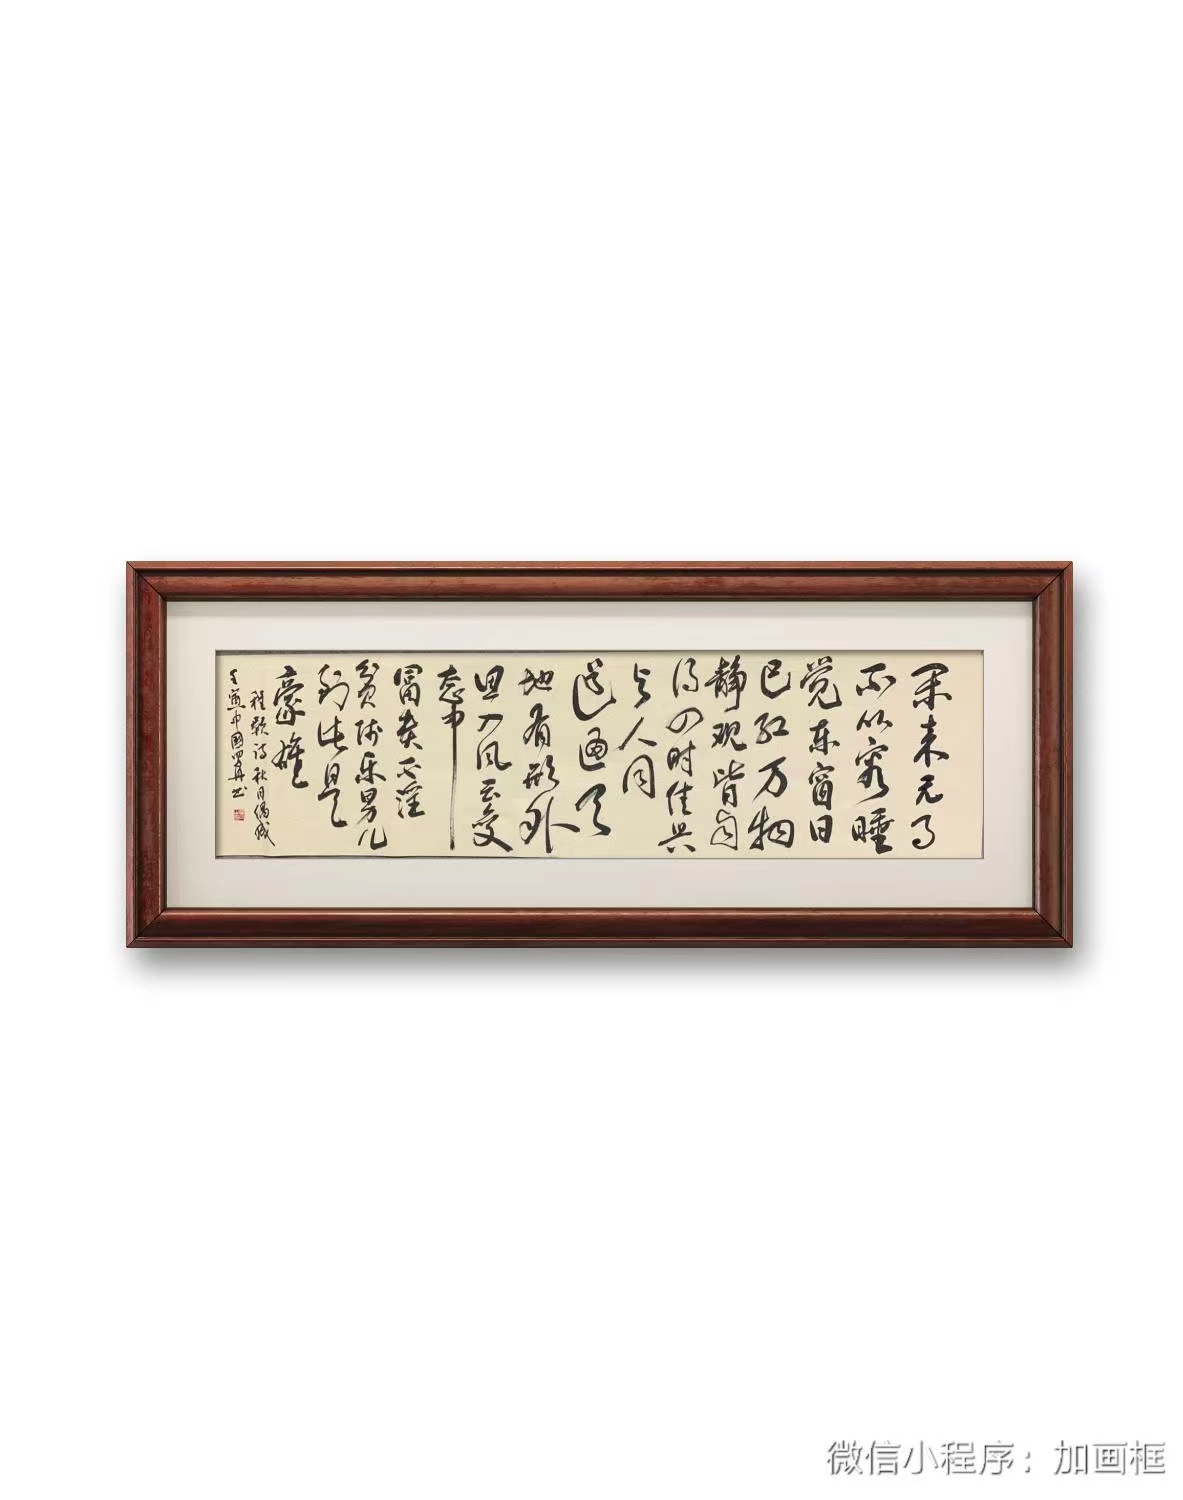 闲来无事
不从容睡
觉东窗日
已红万物
静观皆自
得四时佳兴
与人同
道通天
地有形外
思入风云变
态中
富贵不淫
贫贱乐男儿
到此是
豪雄
程颢诗秋日偶成
中国书
微信小程序：加画框